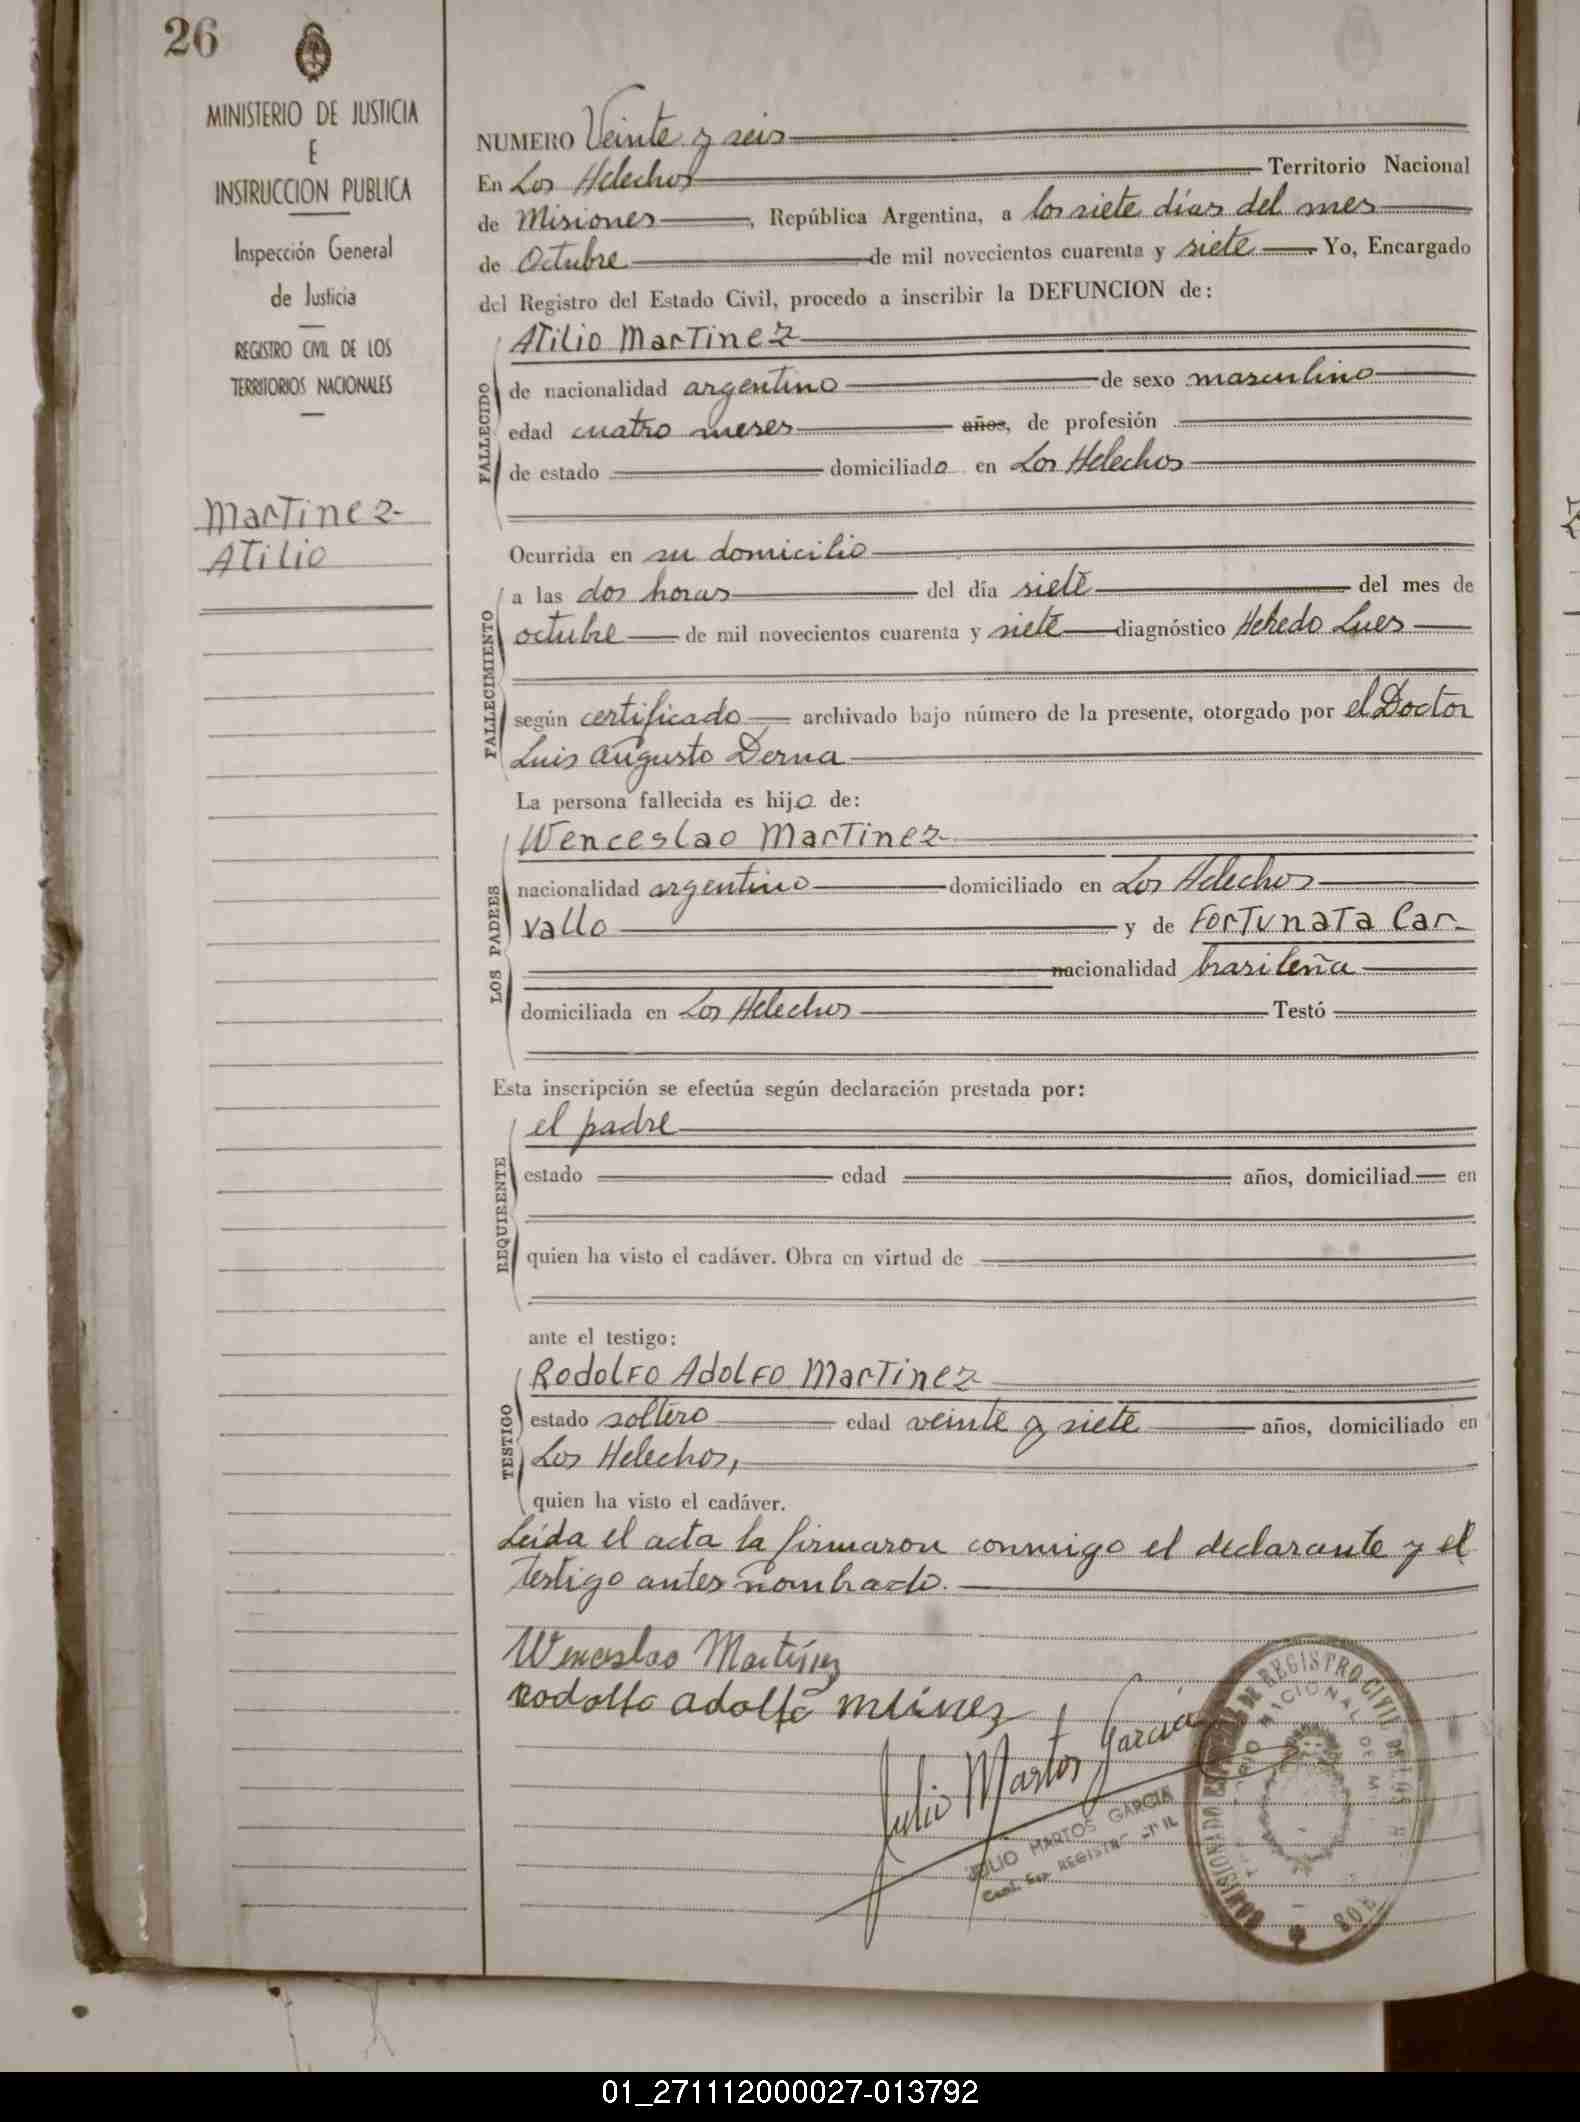 26
MINISTERIO DE JUSTICIA
E
INSTRUCCION PUBLICA
Inspección General
de Justicia
REGISTRO CIVIL DE LOS
TERRITORIOS NACIONALES
Martinez
Atilio
NUMERO Veinte y seis
En Los Helechos Territorio Nacional
de Misiones, República Argentina, a los siete días del mes
de Octubre de mil novecientos cuarenta y siete Yo, Encargado
del Registro del Estado Civil, procedo a inscribir la DEFUNCION de:
FALLECIDO
Atilio Martinez
de nacionalidad argentino de sexo masculino
edad cuatro meses años, de profesión
de estado domiciliado en Los Helechos
Ocurrida en su domicilio
FALLECIMIENTO
a las dos horas del día siete del mes de
octubre de mil novecientos cuarenta y siete diagnóstico Heredo Lues
según certificado archivado bajo número de la presente, otorgado por el Doctor
Luis Augusto Derna
La persona fallecida es hijo de:
LOS PADRES
Wenceslao Martinez
nacionalidad argentino domiciliado en Los Helechos
vallo y de Fortunata Car-
nacionalidad brasileña
domiciliada en Los Helechos Testó
Esta inscripción se efectúa según declaración prestada por:
REQUIRENTE
el padre
estado edad años, domiciliad en
quien ha visto el cadáver. Obra en virtud de
ante el testigo:
TESTIGO
Rodolfo Adolfo Martinez
estado soltero edad veinte y siete años, domiciliado en
Los Helechos,
quien ha visto el cadáver.
Leída el acta la firmaron conmigo el declarante y el
testigo antes nombrado.
Wenceslao Martínez
Rodolfo adolfo
Julio Martos Garcia
JULIO MARTOS GARCIA
REGISTRO CIVIL
DE REGISTRO CIVIL DE LOS
NACIONAL DE
01_271112000027-013792